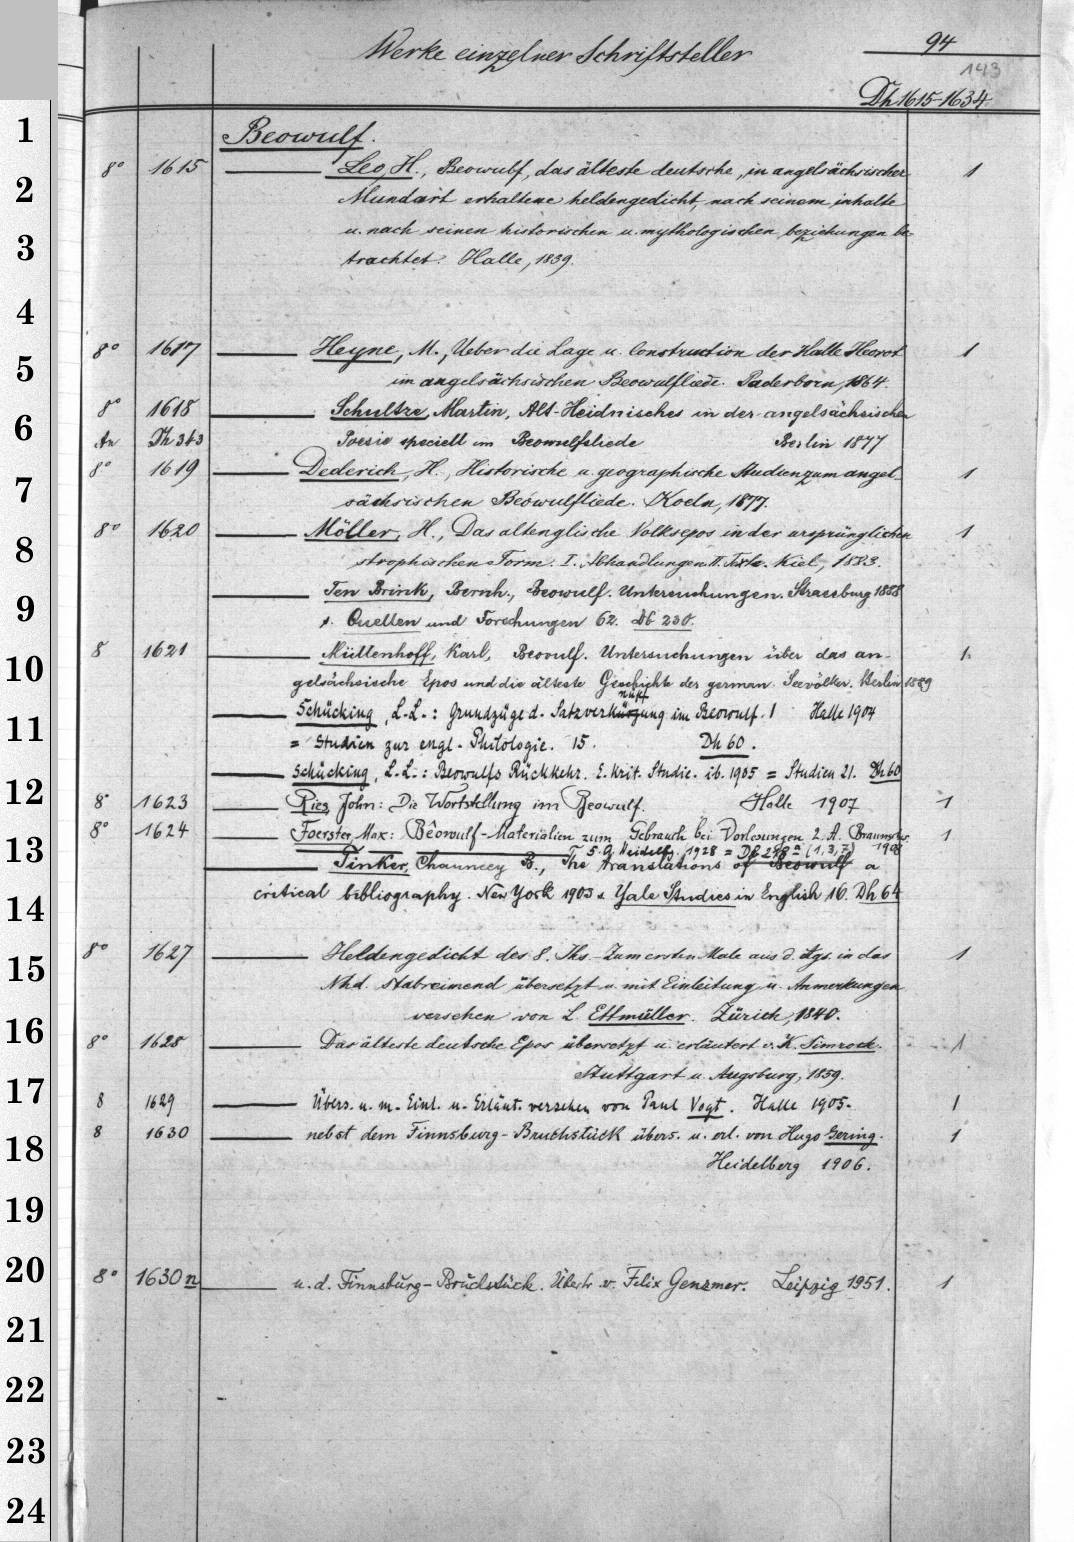 Werke einzelner Schriftsteller
94
143
Dh 1615-1634
Beowulf.
8° 1615 Leo, H., Beowulf, das älteste deutsche, in angelsächsischer 1
Mundart erhaltene heldengedicht, nach seinem inhalte
u. nach seinen historischen u. mythologischen beziehungen be-
trachtet. Halle, 1839.
8° 1617 Heyne, M., Ueber die Lage u. Construction der Halle Heorot 1
im angelsächsischen Beowulfliede. Paderborn, 1864.
8° 1618 Schultze, Martin, Alt-Heidnisches in der angelsächsischen
An Th 343 Poesie speciell im Beowulfsliede Berlin 1877
8° 1619 Dederich, H., Historische u. geographische Studien zum angel- 1
sächsischen Beówulfliede. Koeln, 1877.
8° 1620 Möller, H., Das altenglische Volksepos in der ursprünglichen 1
strophischen Form. I. Abhandlungen II. Texte. Kiel, 1883.
Ten Brink, Bernh., Beowulf. Untersuchungen. Strassburg 1888
s. Quellen und Forschungen 62. Db 230.
8 1621 Müllenhoff, Karl, Beovulf. Untersuchungen über das an- 1
gelsächsische Epos und die älteste Geschichte der german. Seevölker. Berlin 1889
Schücking, L.L.: Grundzüge d. Satzverknüpfung im Beowulf. I Halle 1904
= Studien zur engl. Philologie. 15. Dh 60.
Schücking, L.L.: Beowulfs Rückkehr. E. krit. Studie. ib. 1905 = Studien 21. Dh 60
8 1623 Ries, John: Die Wortstellung im Beowulf. Halle 1907 1
8° 1624 Foerster, Max: Bêowulf-Materialien zum Gebrauch bei Vorlesungen 2. A. Braunschw. 1908 1
5. A. Heidelbg. 1928 = Db 248ⁿ (1,3,7)
Tinker, Chauncey B., The translations of Beowulf a
critical bibliography. New York 1903 s. Yale Studies in English 16. Dh 64
8° 1627 Heldengedicht des 8. Jhs. Zum ersten Male aus d. Ags. in das 1
Nhd. stabreimend übersetzt u. mit Einleitung u. Anmerkungen
versehen von L. Ettmüller. Zürich, 1840.
8° 1628 Das älteste deutsche Epos übersetzt u. erläutert v. K. Simrock. 1
Stuttgart u. Augsburg, 1859.
8 1629 Übers. u. m. Einl. u. Erläut. versehen von Paul Vogt. Halle 1905. 1
8 1630 nebst dem Finnsburg-Bruchstück übers. u. erl. von Hugo Gering. 1
Heidelberg 1906.
8° 1630n u. d. Finnsburg-Bruchstück. Übertr. v. Felix Genzmer. Leipzig 1951. 1
1
2
3
4
5
6
7
8
9
10
11
12
13
14
15
16
17
18
19
20
21
22
23
24